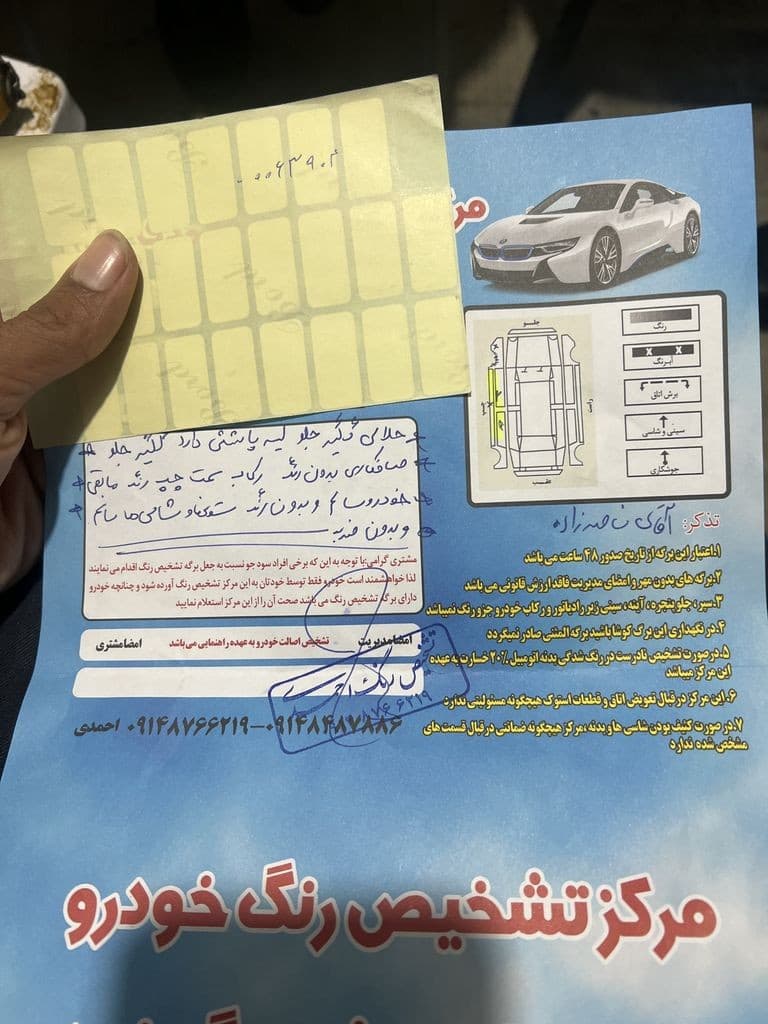 ۰۰۰۶۳۹۰۴
مر
جلو
رنگ
X X
آبرنگ
برش اتاق
سینی و شاسی
جوشکاری
چپ
راست
عقب
گلگیر جلو لیسه پاششی دارد گلگیر جلو
صافکاری بدون رنگ رکاب سمت چپ رنگ مابقی
خودرو سالم و بدون رنگ ستونها و شاسی ها سالم
و بدون ضربه
مشتری گرامی با توجه به این که برخی افراد سود جو نسبت به جعل برگه تشخیص رنگ اقدام می نمایند
لذا خواهشمند است خودرو فقط توسط خودتان به این مرکز تشخیص رنگ آورده شود و چنانچه خودرو
دارای برگه تشخیص رنگ می باشد صحت آن را از این مرکز استعلام نمایید
امضا مدیریت تشخیص اصالت خودرو به عهده راهنمایی می باشد امضا مشتری
۰۹۱۴۸۴۸۷۸۸۶-۰۹۱۴۸۷۶۶۲۱۹ احمدی
تذکر: آقای ناصرزاده
۱.اعتبار این برگه از تاریخ صدور ۴۸ ساعت می باشد
۲.برگه های بدون مهر و امضای مدیریت فاقد ارزش قانونی می باشد
۳.سپر، جلو پنجره، آینه، سینی زیر رادیاتور و رکاب خودرو جزو رنگ نمیباشد
۴.در نگهداری این برگ کوشا باشید برگه المثنی صادر نمیگردد
۵.در صورت تشخیص نادرست در رنگ شدگی بدنه اتومبیل ۲۰٪ خسارت به عهده
این مرکز میباشد
۶.این مرکز در قبال تعویض اتاق و قطعات استوک هیچگونه مسئولیتی ندارد
۷.در صورت کثیف بودن شاسی ها و بدنه، مرکز هیچگونه ضمانتی در قبال قسمت های
مشخص شده ندارد
مرکز تشخیص رنگ خودرو